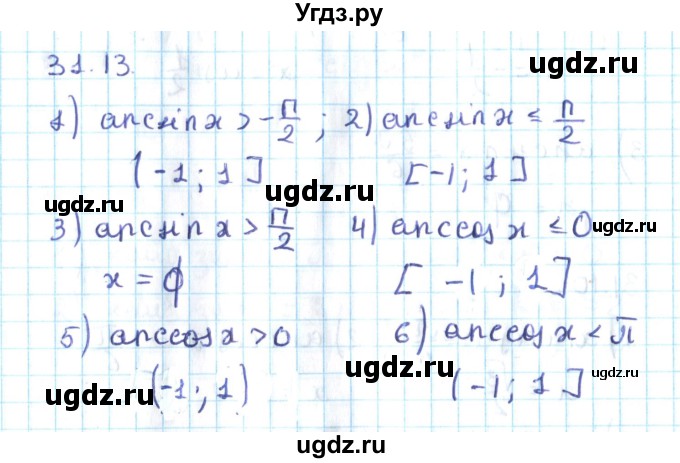 Угдз.ру
31.13.
ugdz.ru
1) arcsin x > -П/2 ; 2) arcsin x ≤ П/2
(-1; 1] [-1; 1]
ugdz.ru ugdz.ru
3) arcsin x > П/2 4) arccos x ≤ 0
ugdz.ru
x = ϕ [ -1 ; 1]
ugdz.ru
5) arccos x > 0 6) arccos x < π
ugdz.ru
(-1; 1) (-1; 1]
ugdz.ru ugdz.ru ugdz.ru
ugdz.ru